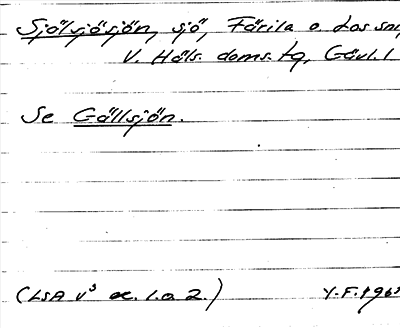 Sjölsjösjön, sjö, Färila o. Los sn
V. Häls. doms. tg, Gävl. l
Se Gällsjön.
(LSA V³ ae. 1. o. 2.) Y.F. 196